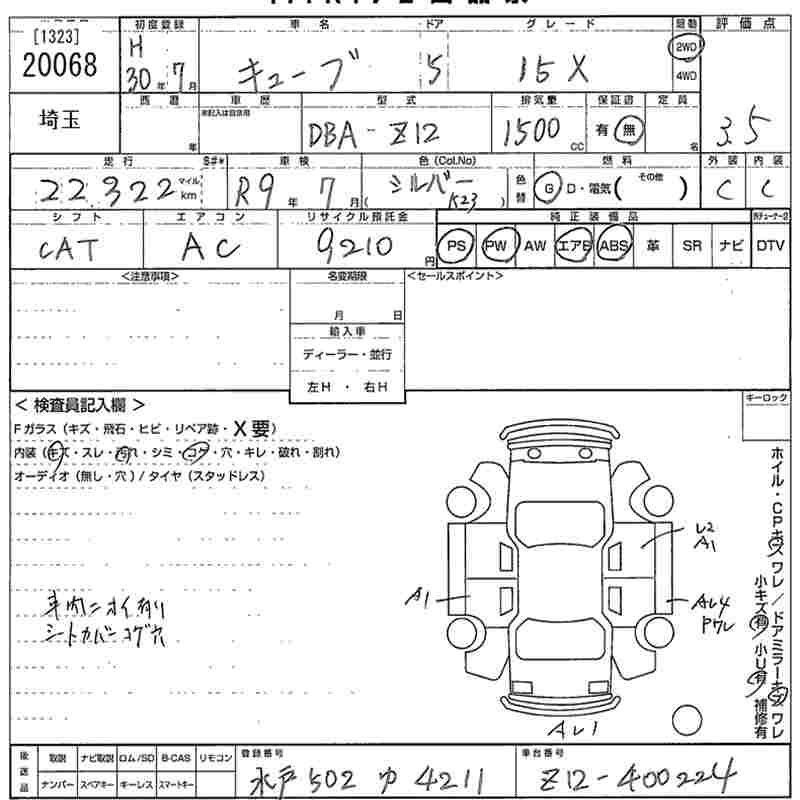 [1323]
20068
埼玉
初度登録
H
30年7月
車名
キューブ
ドア
5
グレード
15X
駆動
2WD
4WD
評価点
3.5
西暦
年
車歴
未記入は自家用
型式
DBA-Z12
排気量
1500 CC
保証書
有 無
定員
名
走行
22322 マイル km
S#*
車検
R9年7月
色(Col.No)
シルバー
( K23 )
色替
燃料
G D・電気( その他 )
外装
C
内装
C
シフト
CAT
エアコン
AC
リサイクル預託金
9210円
純正装備品
PS PW AW エアB ABS 革 SR ナビ DTV
<注意事項>
名変期限
月 日
輸入車
ディーラー・並行
左H ・ 右H
<セールスポイント>
キーロック
< 検査員記入欄 >
Fガラス (キズ・飛石・ヒビ・リペア跡・X要)
内装 (キズ・スレ・汚れ・シミ・コゲ・穴・キレ・破れ・割れ)
オーディオ (無し・穴) / タイヤ (スタッドレス)
車内ニオイ有り
シートカバーコゲ穴
A1
レ2
A1
Aレ4
Pワレ
Aレ1
ホイル・CPキズワレ/ドアミラーキズワレ
小キズ有 小U有 補修有
後送品
取説 ナビ取説 ロム/SD B-CAS リモコン
ナンバー スペアキー キーレス スマートキー
登録番号
水戸 502 ゆ 4211
車台番号
Z12-400224